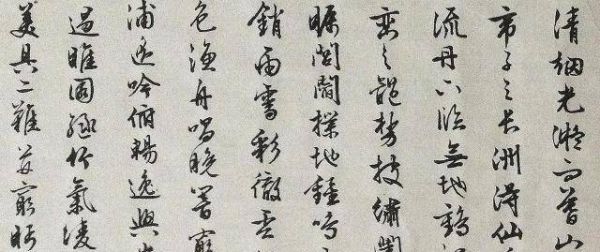 清烟光凝而暮山
帝子之長洲得仙
流丹下臨無地鶴
巒之體勢披繡闥
矚閭閻撲地鐘鳴
銷雨霽彩徹
色漁舟唱晚響窮
浦遥吟俯暢逸興
過睢園綠竹氣凌
美具二難並窮睇